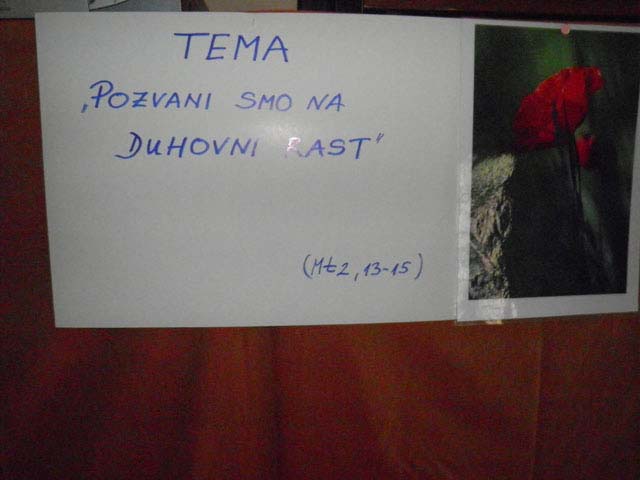 TEMA
„POZVANI SMO NA
DUHOVNI RAST"
(Mt 2, 13-15)